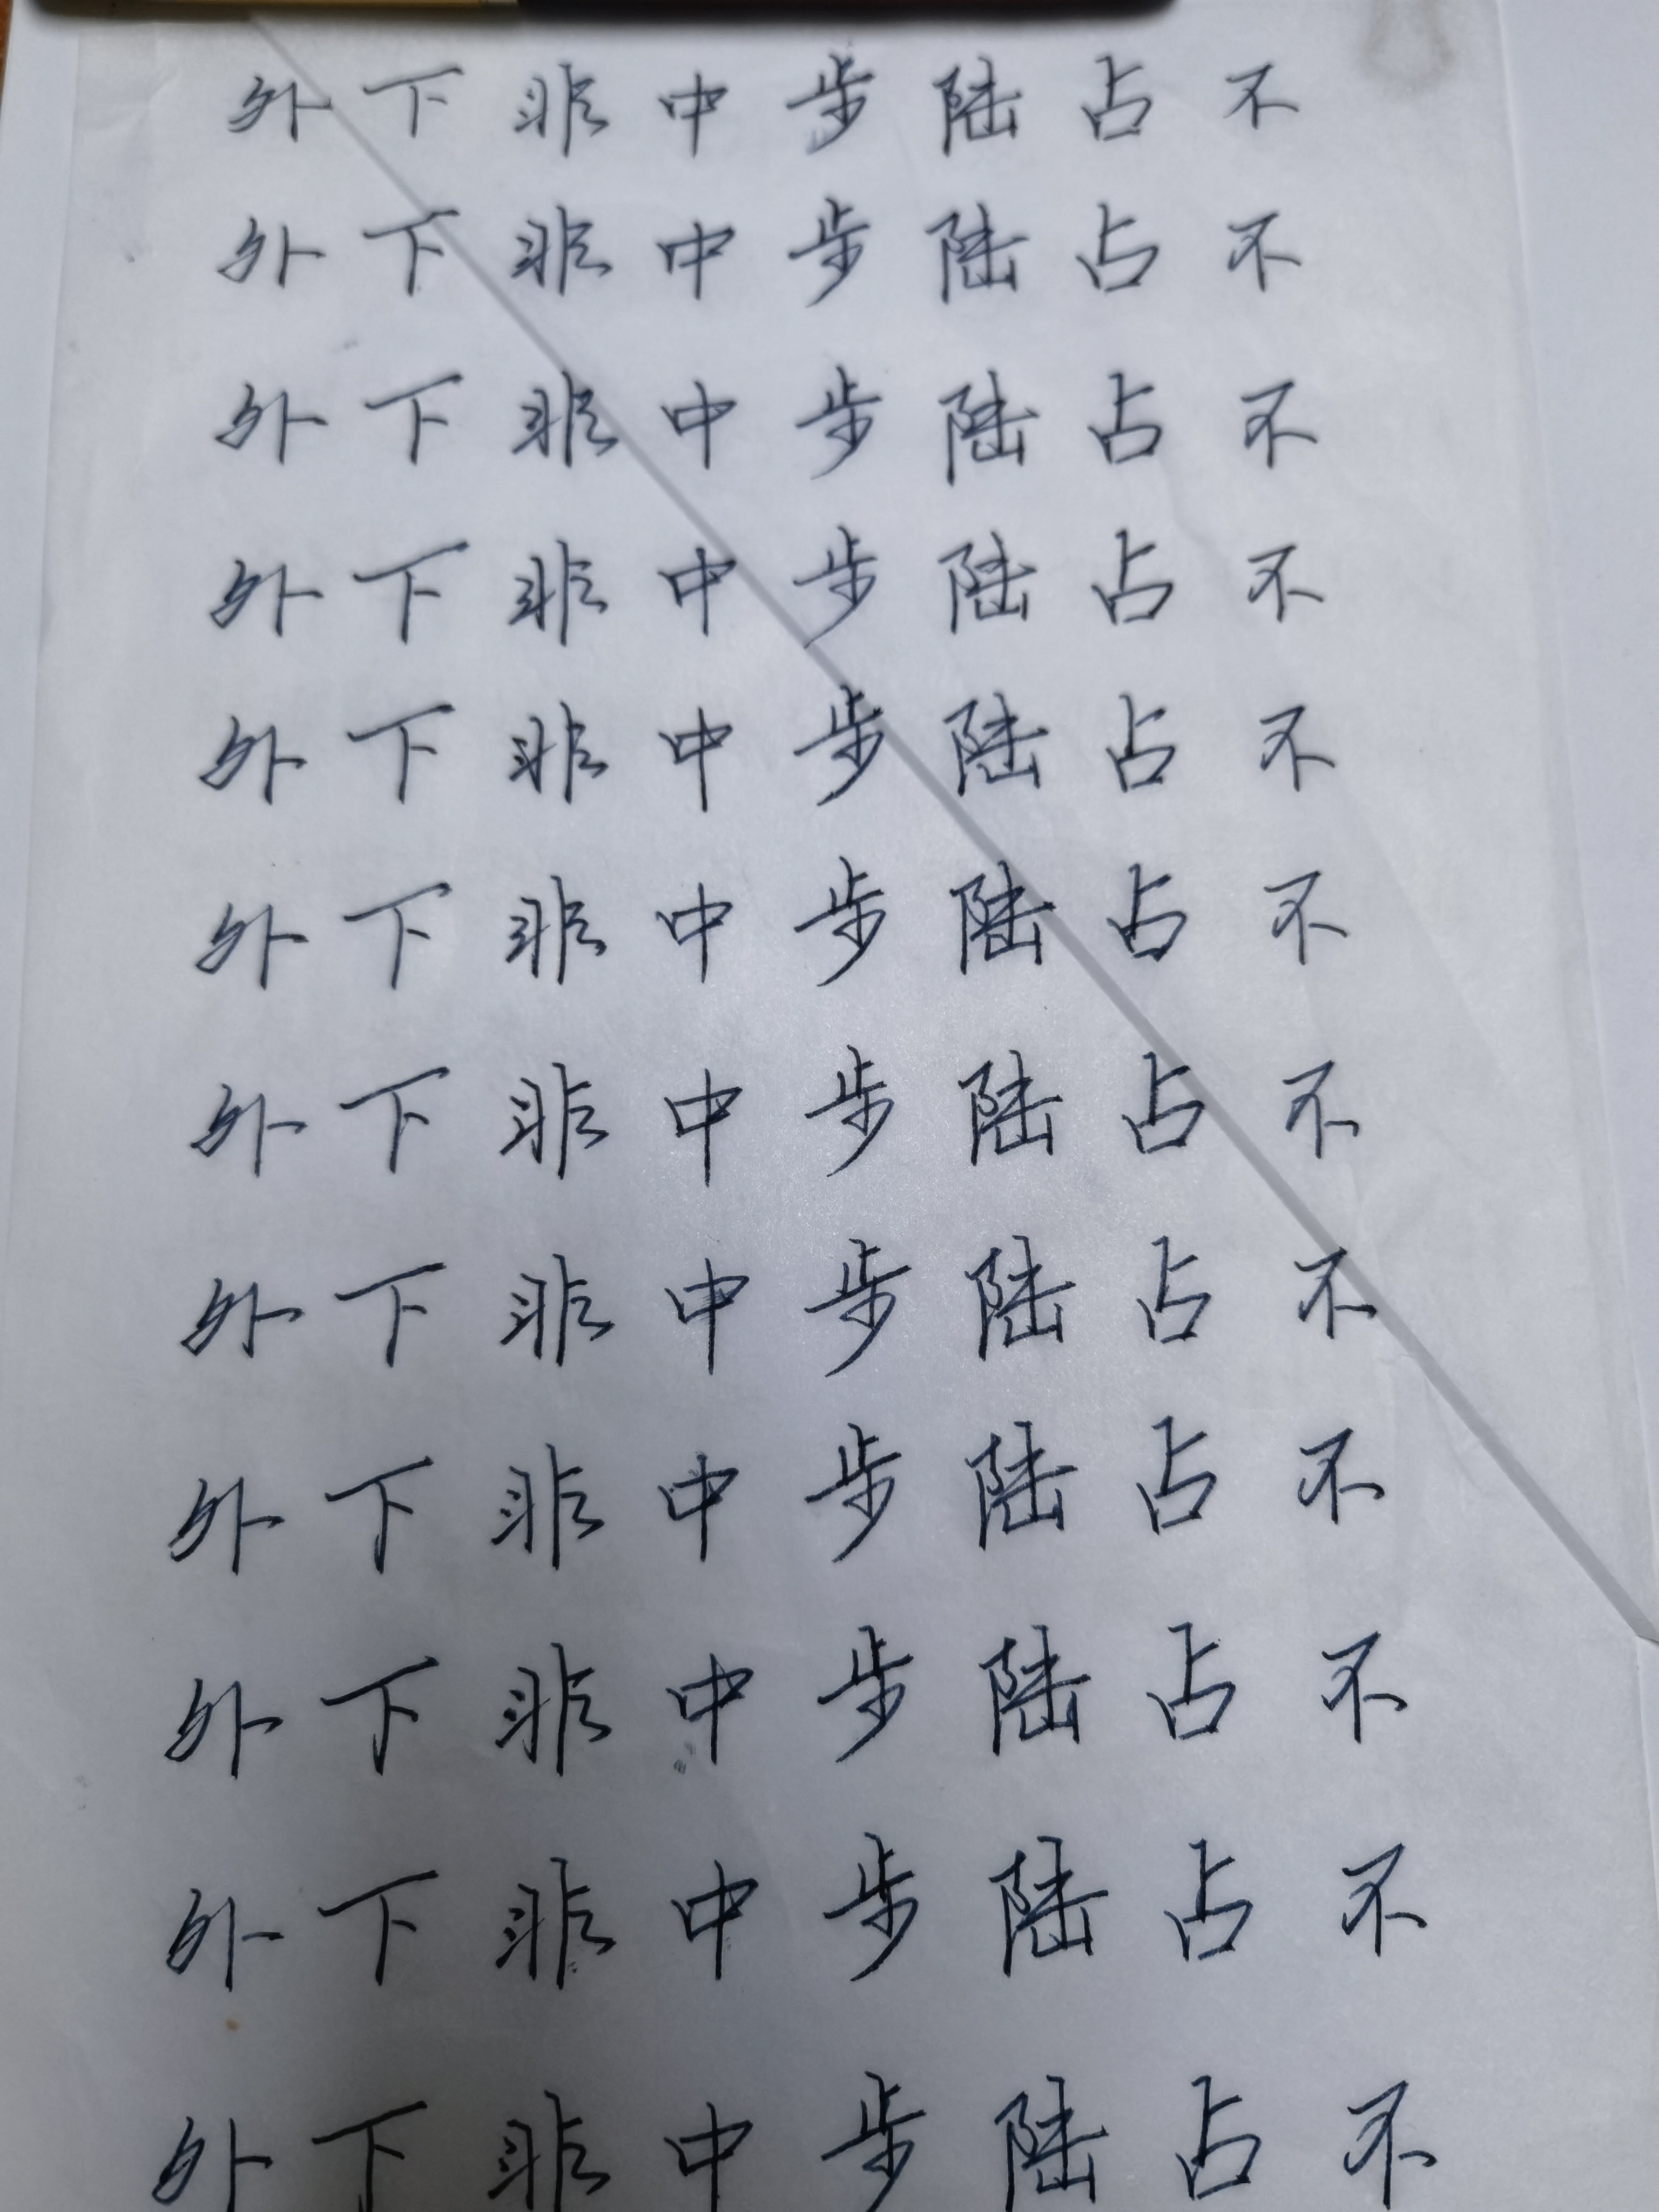 外下非中步陆占不
外下非中步陆占不
外下非中步陆占不
外下非中步陆占不
外下非中步陆占不
外下非中步陆占不
外下非中步陆占不
外下非中步陆占不
外下非中步陆占不
外下非中步陆占不
外下非中步陆占不
外下非中步陆占不